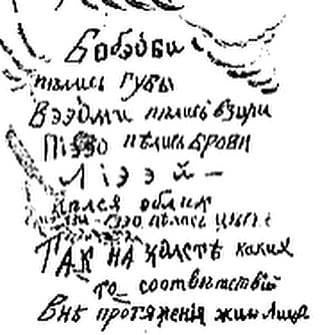 Бобэоби
пѣлись губы
Вээоми пѣлись взоры
Піээо пѣлись брови
Ліээй –
пѣлся облик
гзэо пѣлась цѣпь
Так на холстѣ каких
то соотвѣтствій
Внѣ протяженія жило Лицо